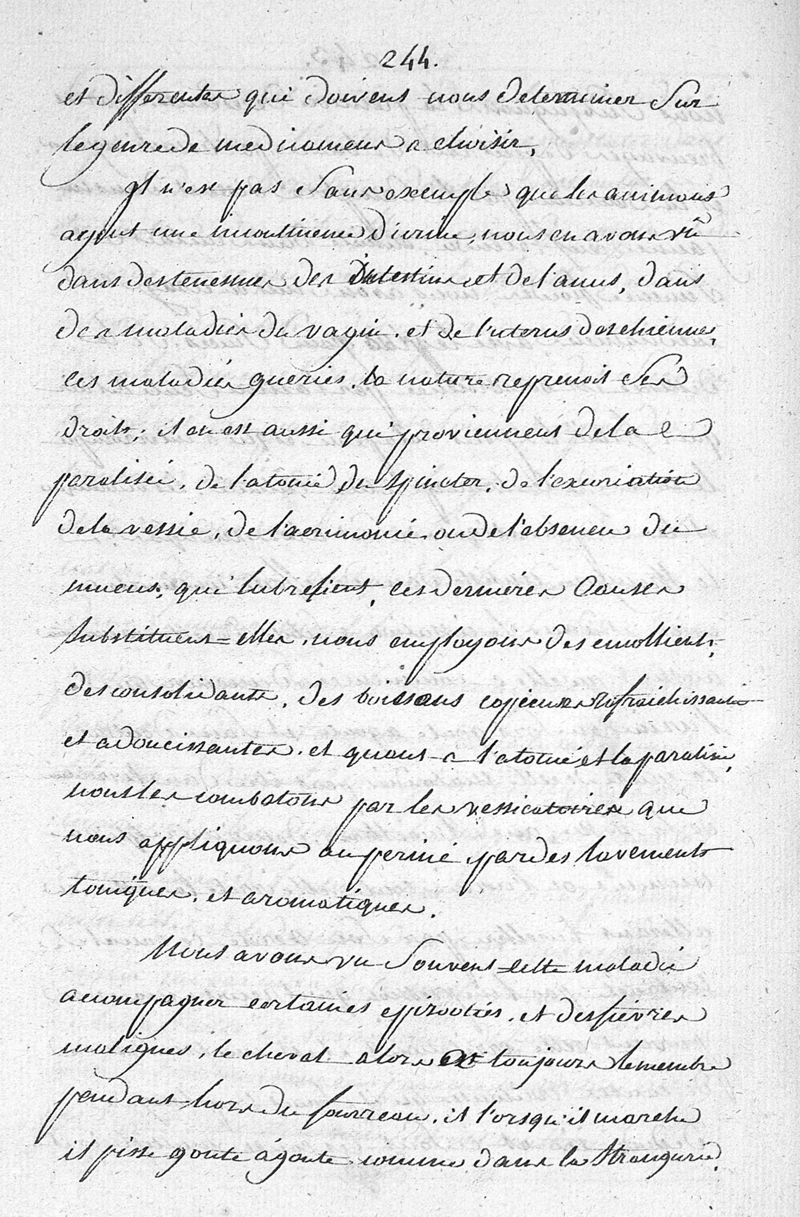 244.
et differentes qui doivent nous determiner sur
le genre de medicamens a choisir,
Il n'est pas sans exemple que les animaux
ayent une incontinence d'urine, nous en avons vû
dans des tenesmes des Intestins et de l'anus, dans
des maladies du vagin. et de l'uterus des chiennes,
ces maladies gueries, la nature reprenoit ses
droits; il en est aussi qui proviennent de la
paralisie, de l'atonie, du spincter, de l'excoriation
de la vessie, de l'acrimonie, ou de l'absence du
mucus, qui lubrefient, ces dernieres causes
substituent=elles, nous employons des emollients,
des consolidants, des boissons copieuses rafraichissantes
et adoucissantes. et quant a l'atonie et la paralisie,
nous les combatons par les vessicatoires que
nous appliquons au periné, par des lavements
toniques, et aromatiques.
Nous avons vu souvent cette maladie
accompagner certaines epizooties, et des fievres
malignes, le cheval alors a toujours le membre
pendant hors du fourreau, et lorsqu'il marche
il pisse goute à goute comme dans la strangurie.